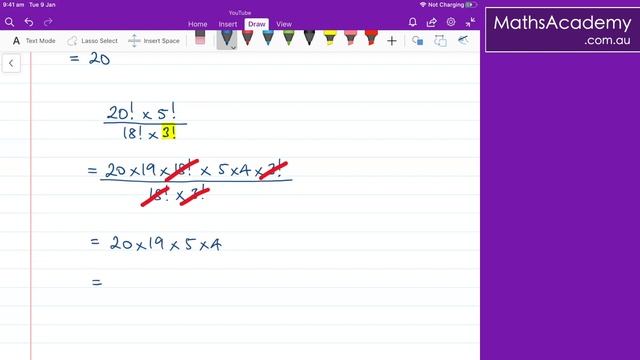 9:41 am Tue 9 Jan
YouTube
Not Charging
Home Insert Draw View
Text Mode Lasso Select Insert Space
MathsAcademy
.com.au
= 20
20! × 5!
18! × 3!
= 20 × 19 × 18! × 5 × 4 × 3!
18! × 3!
= 20 × 19 × 5 × 4
=